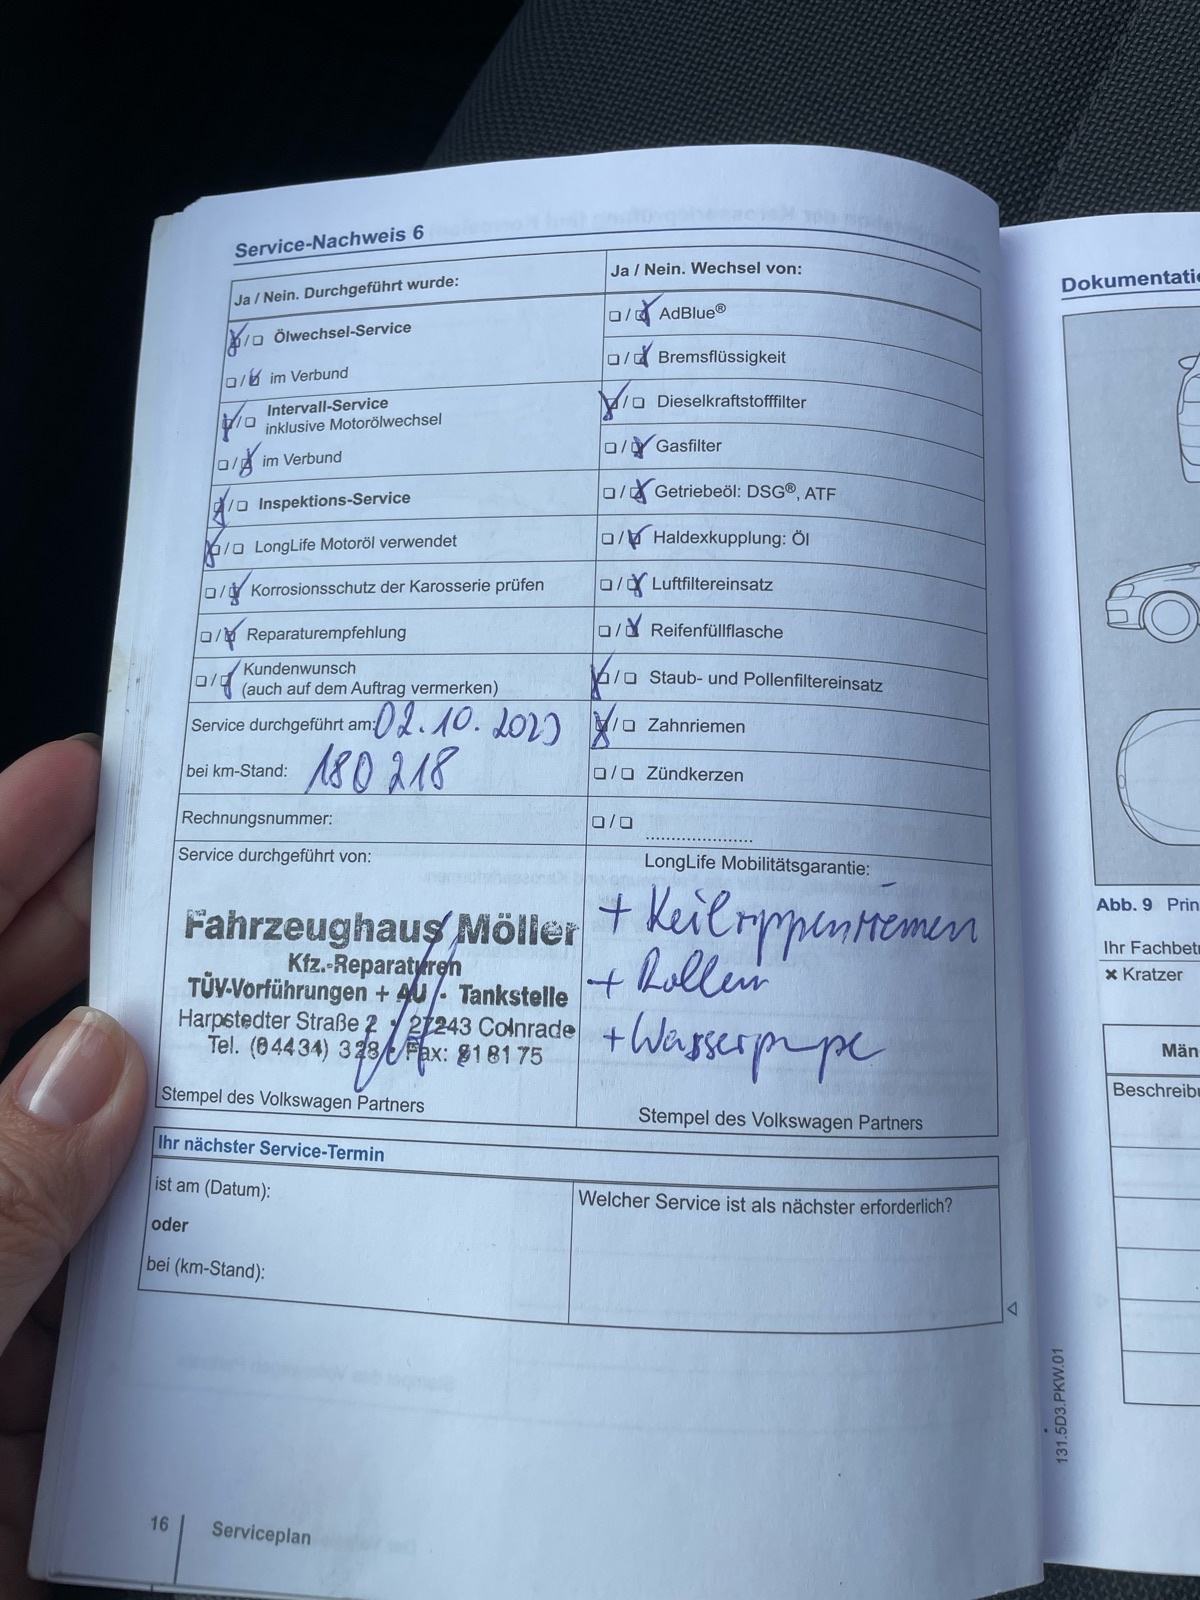 Service-Nachweis 6
Ja / Nein. Durchgeführt wurde:
Ölwechsel-Service
im Verbund
Intervall-Service
inklusive Motorölwechsel
im Verbund
Inspektions-Service
LongLife Motoröl verwendet
Korrosionsschutz der Karosserie prüfen
Reparaturempfehlung
Kundenwunsch
(auch auf dem Auftrag vermerken)
Service durchgeführt am: 02.10.2023
bei km-Stand: 180 218
Rechnungsnummer:
Service durchgeführt von:
Fahrzeughaus Möller
Kfz.-Reparaturen
TÜV-Vorführungen + AU - Tankstelle
Harpstedter Straße 2 • 27243 Colnrade
Tel. (04434) 328 • Fax: 818175
Stempel des Volkswagen Partners
Ja / Nein. Wechsel von:
AdBlue®
Bremsflüssigkeit
Dieselkraftstofffilter
Gasfilter
Getriebeöl: DSG®, ATF
Haldexkupplung: Öl
Luftfiltereinsatz
Reifenfüllflasche
Staub- und Pollenfiltereinsatz
Zahnriemen
Zündkerzen
LongLife Mobilitätsgarantie:
+ Keilrippenriemen
+ Rollen
+ Wasserpumpe
Stempel des Volkswagen Partners
Ihr nächster Service-Termin
ist am (Datum):
oder
bei (km-Stand):
Welcher Service ist als nächster erforderlich?
16
Serviceplan
131.5D3.PKW.01
Dokumentatio
Abb. 9 Prin
Ihr Fachbet
× Kratzer
Män
Beschreibu